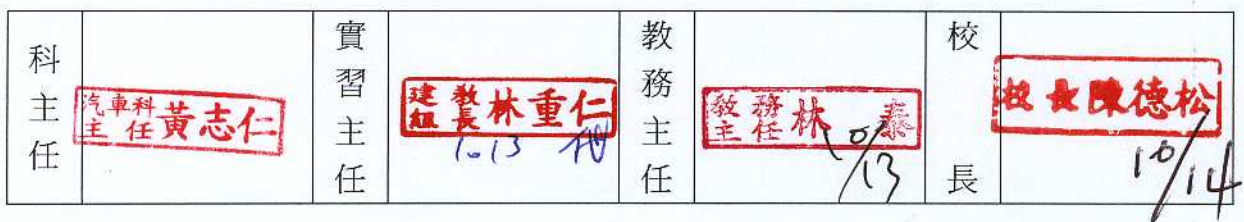 科主任
汽車科
主任黃志仁
實習主任
建教
組長林重仁
1013 代
教務主任
教務
主任林泰
10/13
校長
校長陳德松
10/14